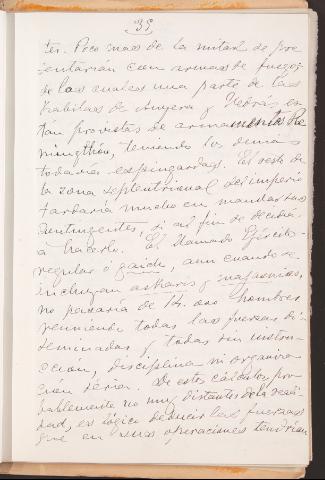 39,
ter. Poco mas de la mitad se pre
sentarían con armas de fuego,
de las cuales una parte de las
kabilas de Anyera y es
tán provistas de armamento Re
mingthón, teniendo los demas
todavia espingardas. El resto de
la zona septentrional del imperio
tardaría mucho en mandar sus
contingentes, si al fin se decidia
á hacerlo. El llamado Ejército
regular ó gaich, aun cuando se
incluyan askaris y
no pasaría de 14.000 hombres
reuniendo todas las fuerzas di
seminadas y todas sin instru
cción, disciplina ni organiza
ción séria. De estos cálculos, pro
bablemente no muy distantes de la verd
dad, es lógico deducir las fuerzas
que en unas operaciones tendrian